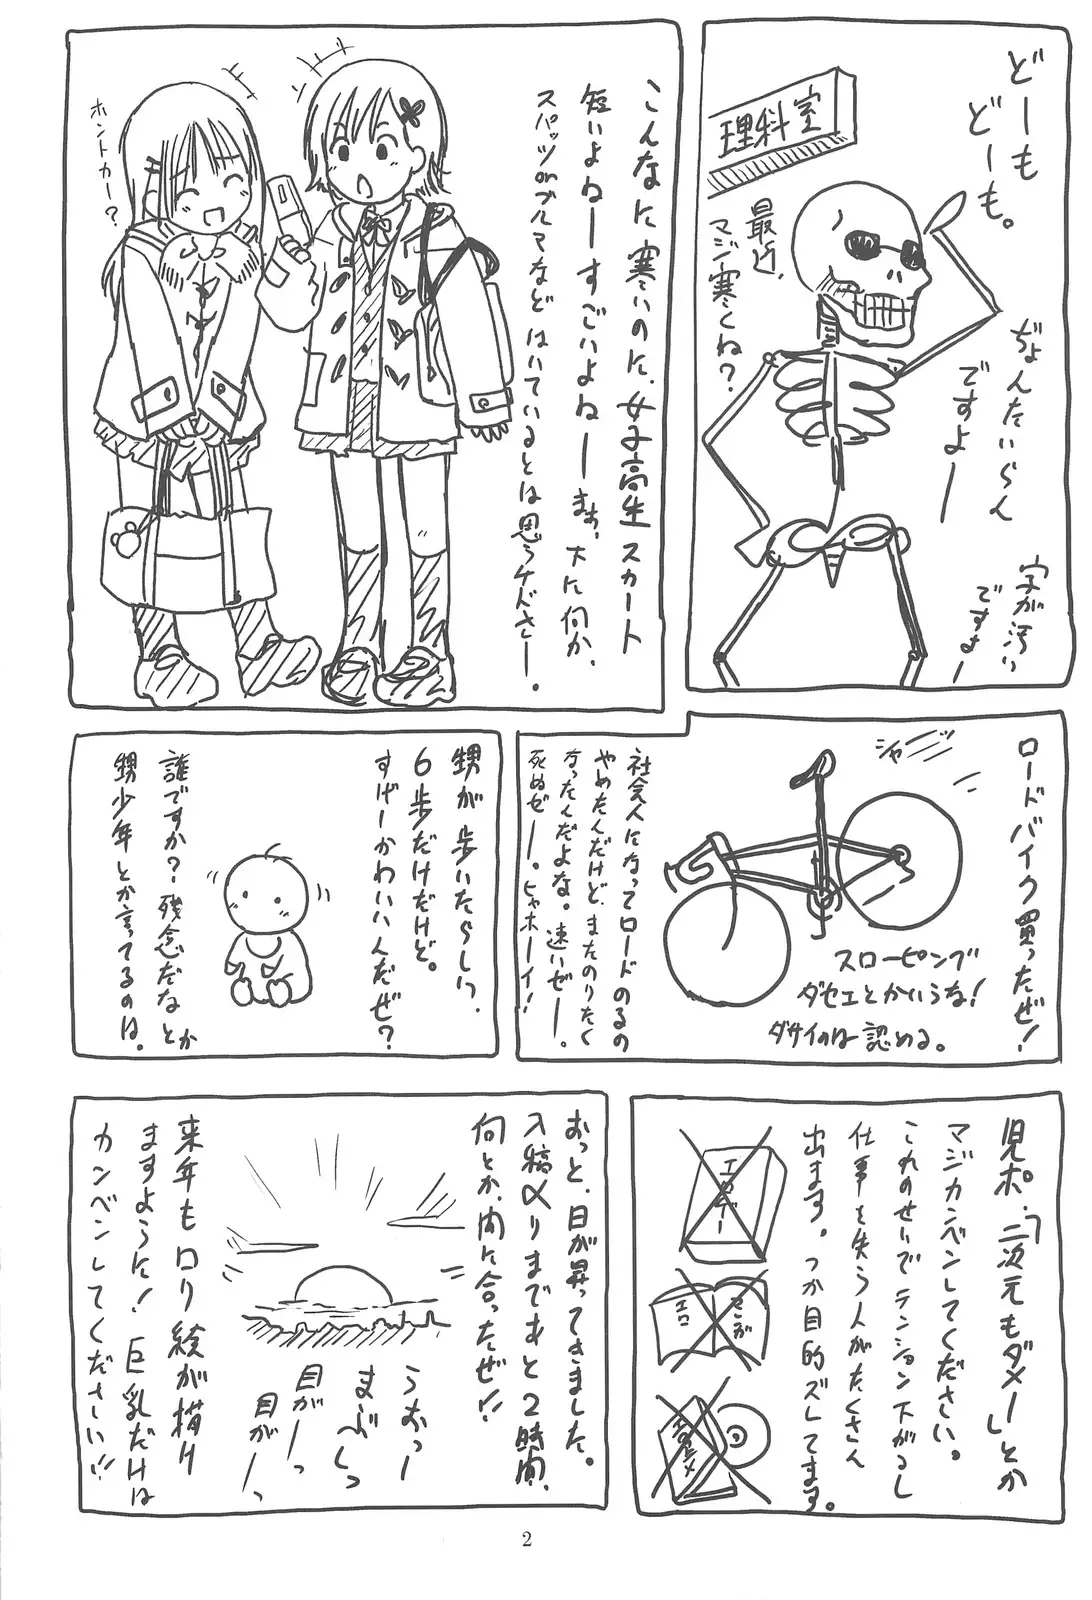 どーも
どーも。
ぢょんたいらん
ですよー
字が汚い
ですよー
理科室
最近、
マジ寒くね?
こんなに寒いのに、女子高生スカート
短いよねーすごいよねーまぁ、下に何か、
スパッツorブルマなど はいているとは思うケドさー。
ホントカー?
ロードバイク買ったぜ!
シャーッ
スローピング
ダセェとかいうな!
ダサイのは認める。
社会人になってロードのるの
やめたんだけど、またのりたく
なったんだよな。速いぜー。
死ぬぜー。ヒャホーイ!
甥が歩いたらしい、
6歩だけだけど。
すげーかわいいんだぜ?
誰ですか?残念だな とか
甥少年とか言ってるのは。
児ポ、二次元もダメーしとか
マジカンベンしてください。
これのせいでテンション下がるし
仕事を失う人がたくさん
出ます。つか目的ズレてます。
エロ
まんが
おっと、日が昇ってきました。
入稿〆りまであと2時間、
何とか、間に合ったぜ!!
うおっー
まぶしっ
目がーっ
目がーっ
来年もロリ絵が描け
ますように!巨乳だけは
カンベンしてくださいい!!
2